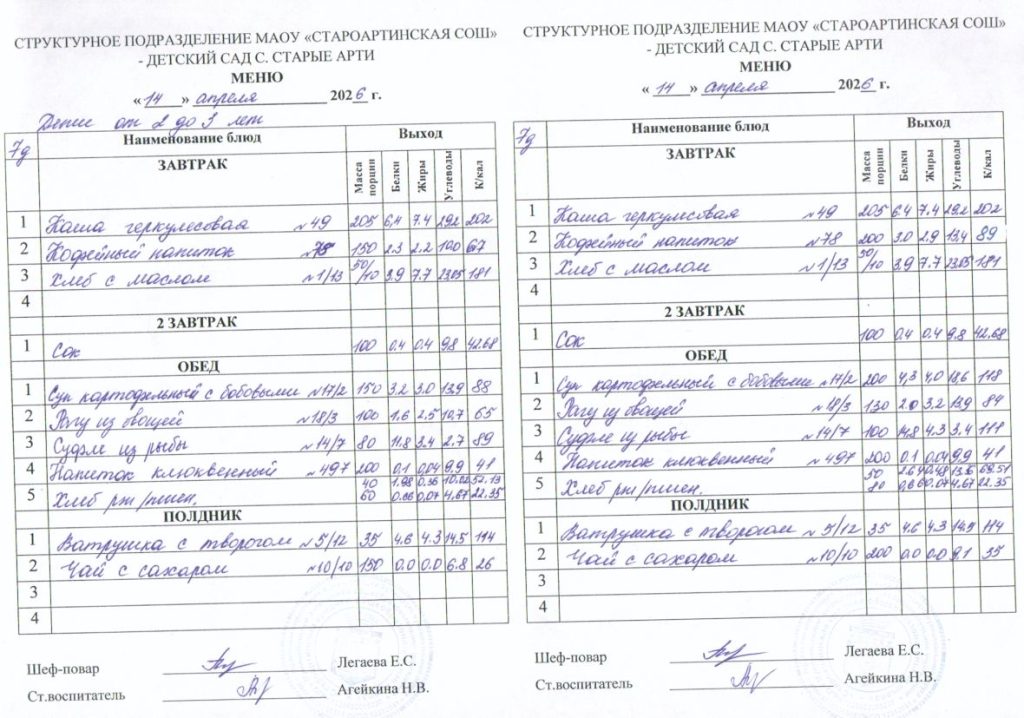 СТРУКТУРНОЕ ПОДРАЗДЕЛЕНИЕ МАОУ «СТАРОАРТИНСКАЯ СОШ»
- ДЕТСКИЙ САД С. СТАРЫЕ АРТИ
МЕНЮ
«14» апреля 2026 г.
Дети от 2 до 3 лет
7д Наименование блюд Выход
ЗАВТРАК Масса порции Белки Жиры Углеводы К/кал
1 Каша геркулесовая №49 205 6,4 7.4 29.2 202
2 Кофейный напиток №78 150 2.3 2.2 10.0 67
3 Хлеб с маслом №1/13 50/10 3.9 7.7 23.05 181
4
2 ЗАВТРАК
1 Сок 100 0.4 0.4 9.8 42.68
ОБЕД
1 Суп картофельный с бобовыми №17/2 150 3.2 3.0 13.9 88
2 Рагу из овощей №18/3 100 1.6 2.5 10,7 65
3 Суфле из рыбы №14/7 80 11.8 3.4 2.7 89
4 Напиток клюквенный №497 200 0.1 0.04 9.9 41
5 Хлеб рж/пшен. 40 1.98 0.36 10.02 52.13
60 0.66 0.07 4.67 22.35
ПОЛДНИК
1 Ватрушка с творогом №5/12 35 4.6 4.3 14.5 114
2 Чай с сахаром №10/10 150 0.0 0.0 6.8 26
3
4
Шеф-повар Легаева Е.С.
Ст.воспитатель Агейкина Н.В.
СТРУКТУРНОЕ ПОДРАЗДЕЛЕНИЕ МАОУ «СТАРОАРТИНСКАЯ СОШ»
- ДЕТСКИЙ САД С. СТАРЫЕ АРТИ
МЕНЮ
«14» апреля 2026 г.
7д Наименование блюд Выход
ЗАВТРАК Масса порции Белки Жиры Углеводы К/кал
1 Каша геркулесовая №49 205 6.4 7.4 29.2 202
2 Кофейный напиток №78 200 3.0 2.9 13.4 89
3 Хлеб с маслом №1/13 50/10 3.9 7.7 23.05 181
4
2 ЗАВТРАК
1 Сок 100 0.4 0.4 9.8 42.68
ОБЕД
1 Суп картофельный с бобовыми №17/2 200 4,3 4,0 18.6 118
2 Рагу из овощей №18/3 130 2.0 3.2 13.9 84
3 Суфле из рыбы №14/7 100 14.8 4.3 3.4 111
4 Напиток клюквенный №497 200 0.1 0.04 9.9 41
5 Хлеб рж/пшен. 50 2.64 0.48 13.6 69.51
80 0.66 0.07 4.67 22.35
ПОЛДНИК
1 Ватрушка с творогом №5/12 35 4.6 4.3 14.5 114
2 Чай с сахаром №10/10 200 0.0 0.0 9.1 35
3
4
Шеф-повар Легаева Е.С.
Ст.воспитатель Агейкина Н.В.